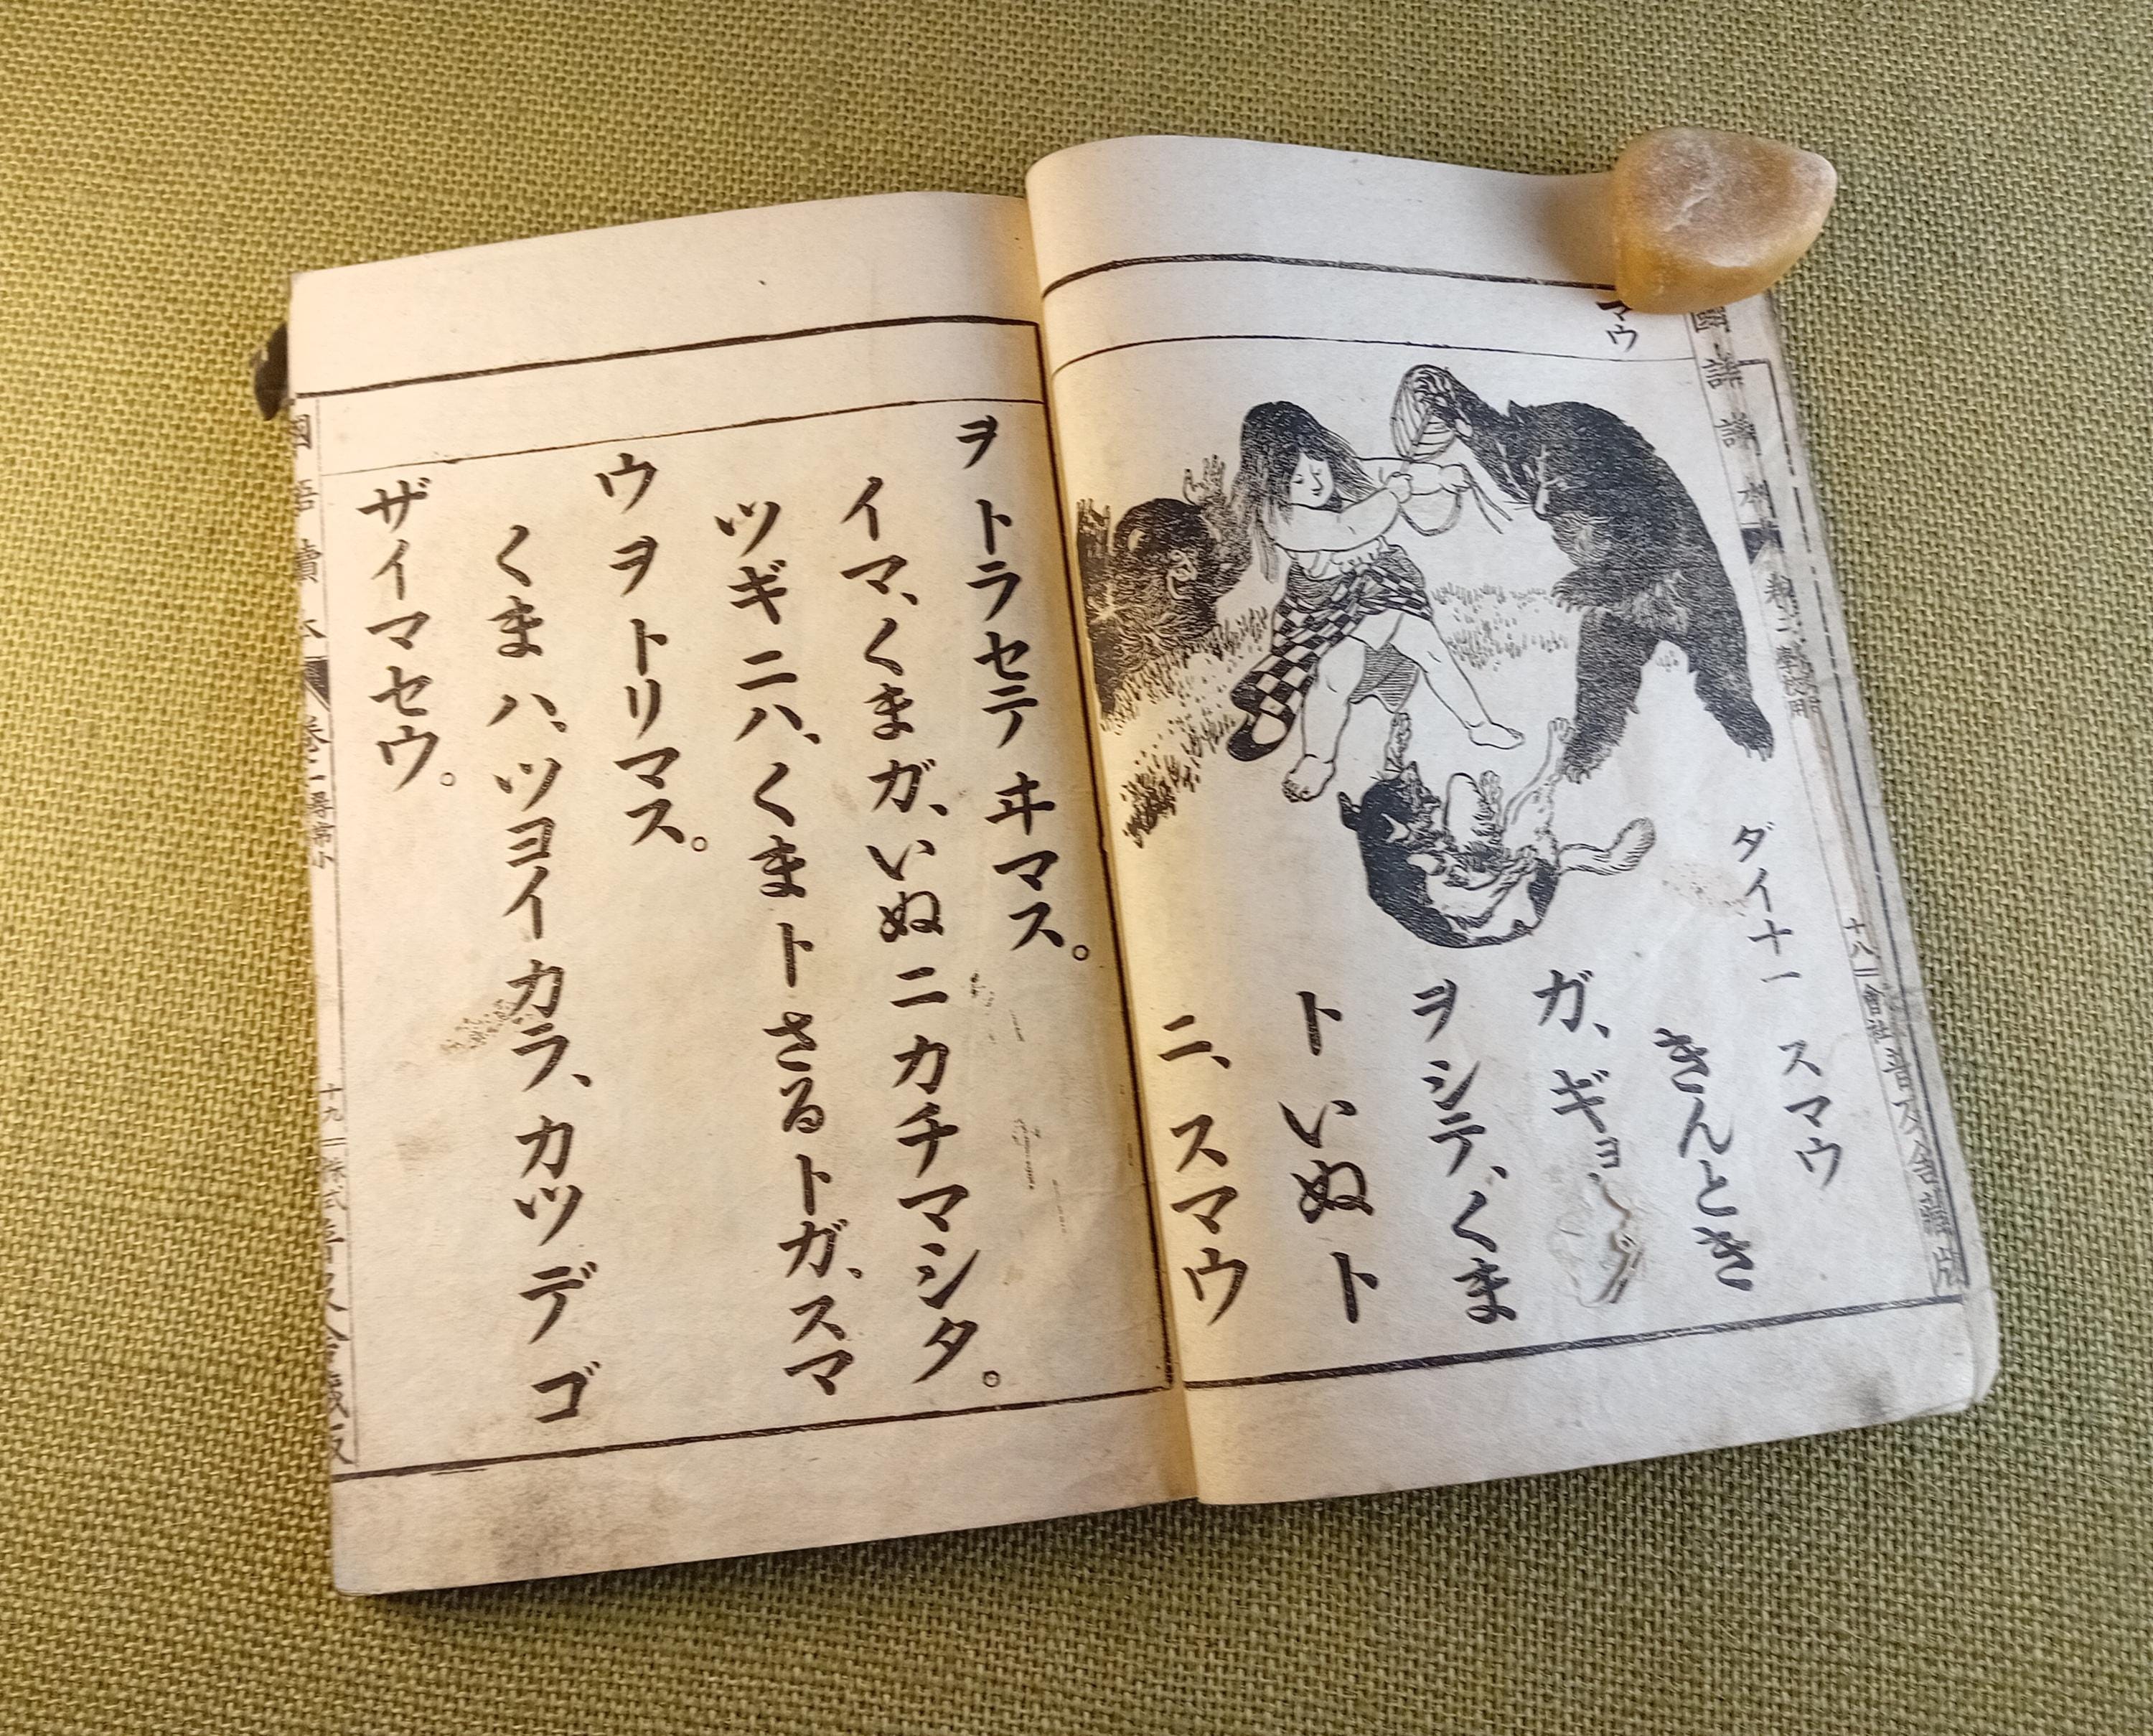 マウ
ダイナ一 スマウ
きんとき
ガ、ギョ
ヲシテ、くま
トいぬト
ニ、スマウ
十八
ヲトラセテヰマス。
イマ、くまガ、いぬニカチマシタ。
ツギニハ、くまトさるトガ、スマ
ウヲトリマス。
くまハ、ツヨイカラ、カツデゴ
ザイマセウ。
十九